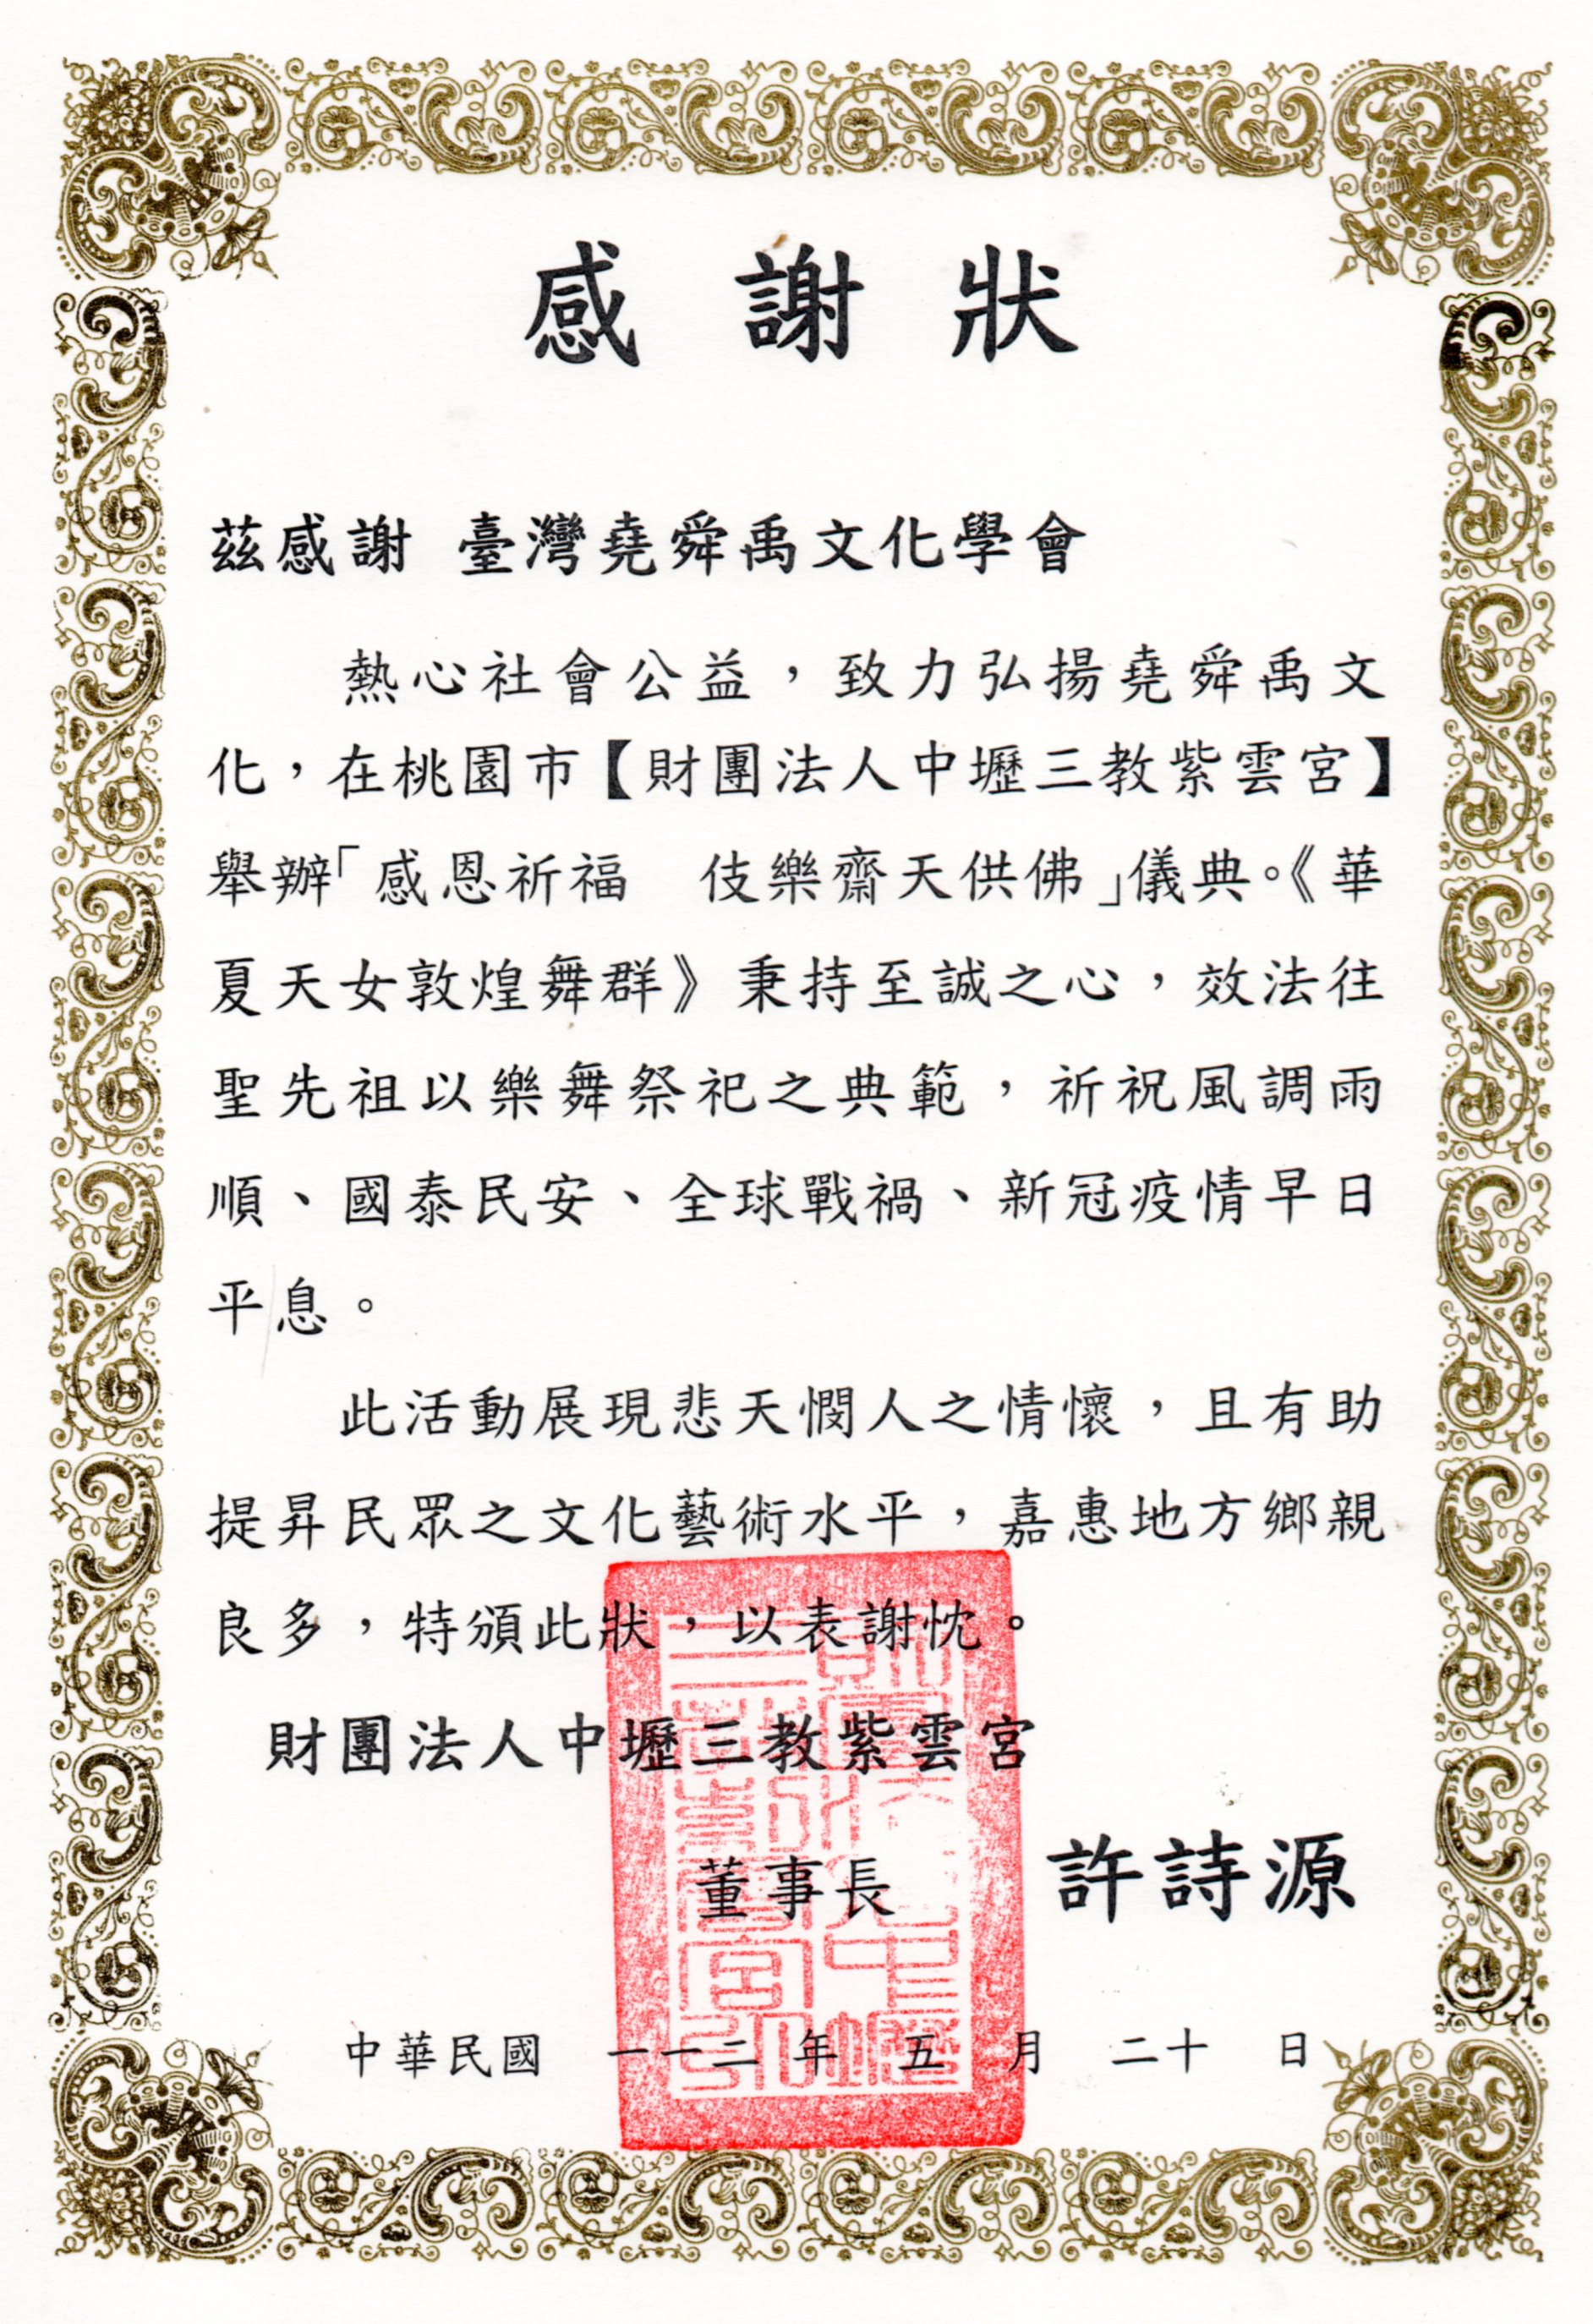 感謝狀
茲感謝 臺灣堯舜禹文化學會
熱心社會公益，致力弘揚堯舜禹文
化，在桃園市【財團法人中壢三教紫雲宮】
舉辦「感恩祈福　伎樂齋天供佛」儀典。《華
夏天女敦煌舞群》秉持至誠之心，效法往
聖先祖以樂舞祭祀之典範，祈祝風調雨
順、國泰民安、全球戰禍、新冠疫情早日
平息。
此活動展現悲天憫人之情懷，且有助
提昇民眾之文化藝術水平，嘉惠地方鄉親
良多，特頒此狀，以表謝忱。
財團法人中壢三教紫雲宮
董事長 許詩源
中華民國 一一二 年 五 月 二十 日